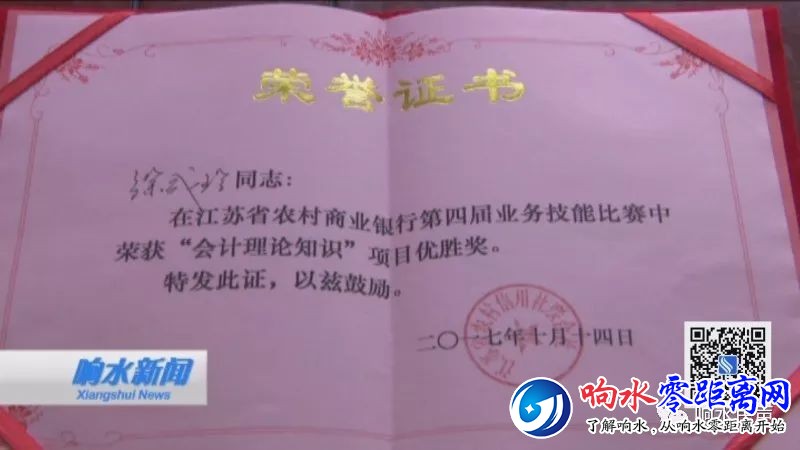 荣誉证书
徐武玲同志:
在江苏省农村商业银行第四届业务技能比赛中
荣获“会计理论知识”项目优胜奖。
特发此证，以兹鼓励。
二〇一七年十月十四日
响水新闻
Xiangshui News
响水零距离网
了解响水，从响水零距离开始